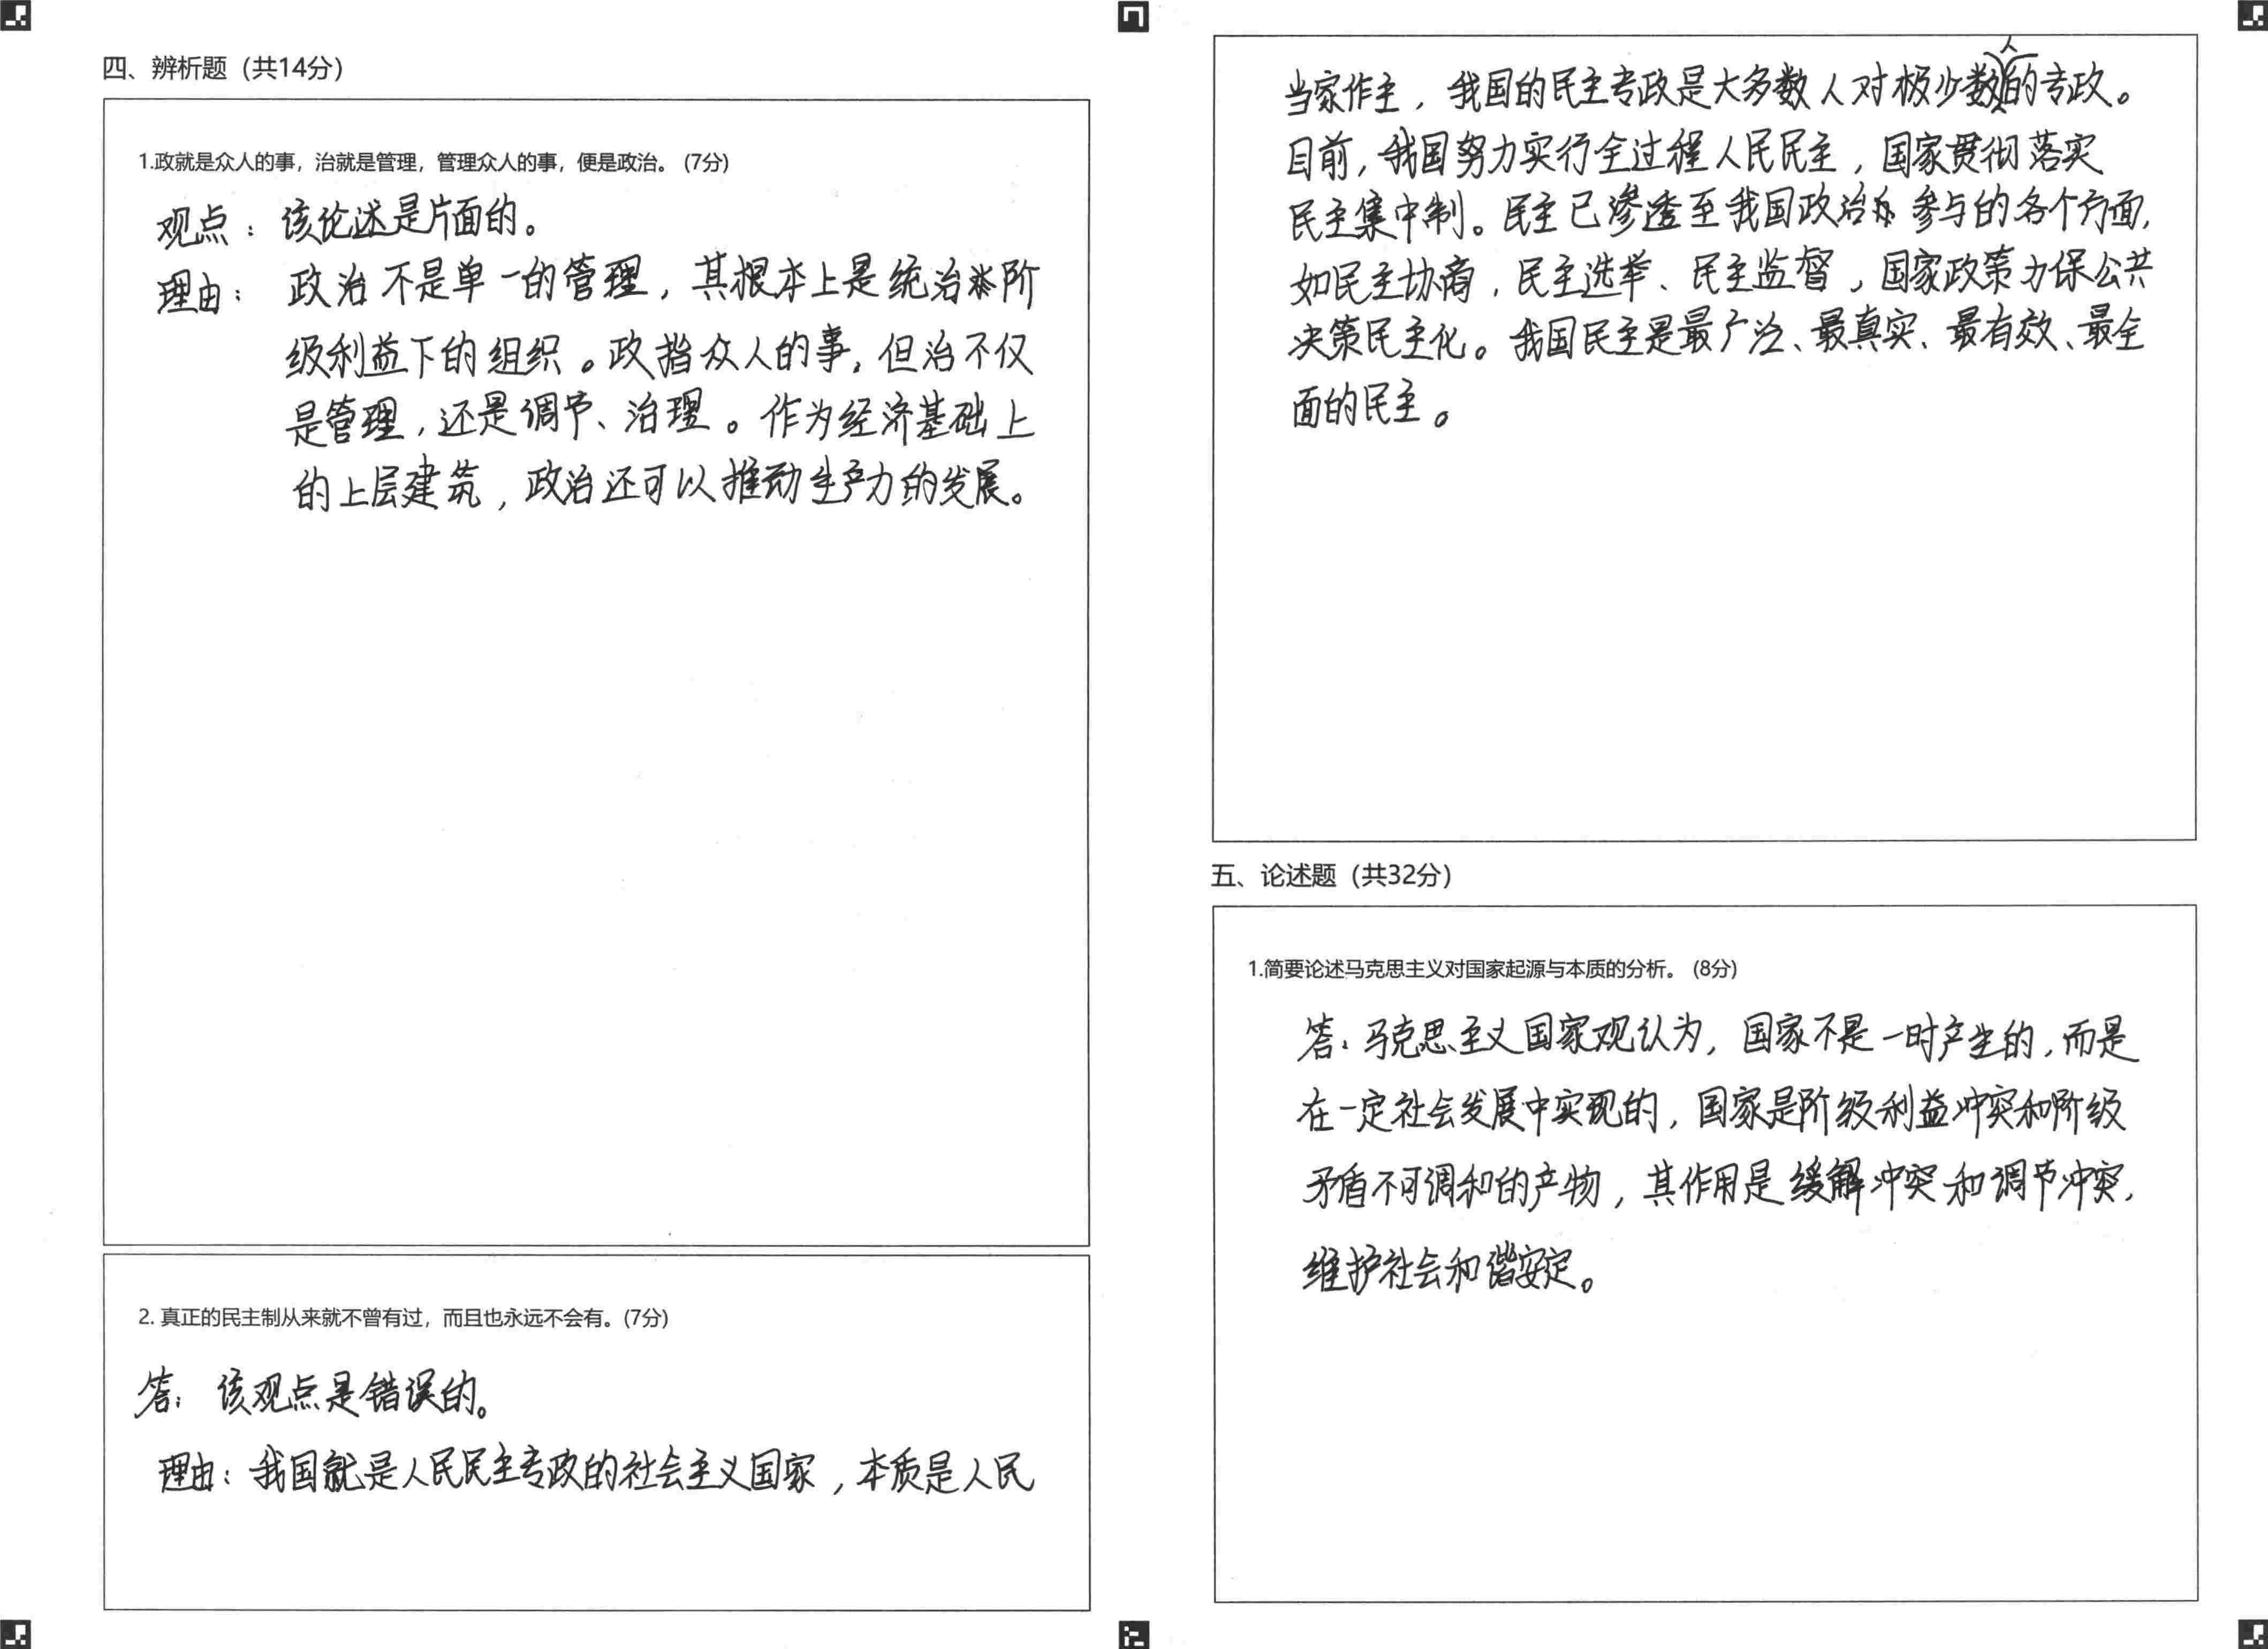 四、辨析题（共14分）
1.政就是众人的事，治就是管理，管理众人的事，便是政治。 (7分)
观点：该论述是片面的。
理由：政治不是单一的管理，其根本上是统治阶
级利益下的组织。政指众人的事，但治不仅
是管理，还是调节、治理。作为经济基础上
的上层建筑，政治还可以推动生产力的发展。
2. 真正的民主制从来就不曾有过，而且也永远不会有。(7分)
答：该观点是错误的。
理由：我国就是人民民主专政的社会主义国家，本质是人民
当家作主，我国的民主专政是大多数人对极少数人的专政。
目前，我国努力实行全过程人民民主，国家贯彻落实
民主集中制。民主已渗透至我国政治参与的各个方面，
如民主协商，民主选举、民主监督，国家政策力保公共
决策民主化。我国民主是最广泛、最真实、最有效、最全
面的民主。
五、论述题（共32分）
1.简要论述马克思主义对国家起源与本质的分析。 (8分)
答：马克思主义国家观认为，国家不是一时产生的，而是
在一定社会发展中实现的，国家是阶级利益冲突和阶级
矛盾不可调和的产物，其作用是缓解冲突和调节冲突，
维护社会和谐安定。